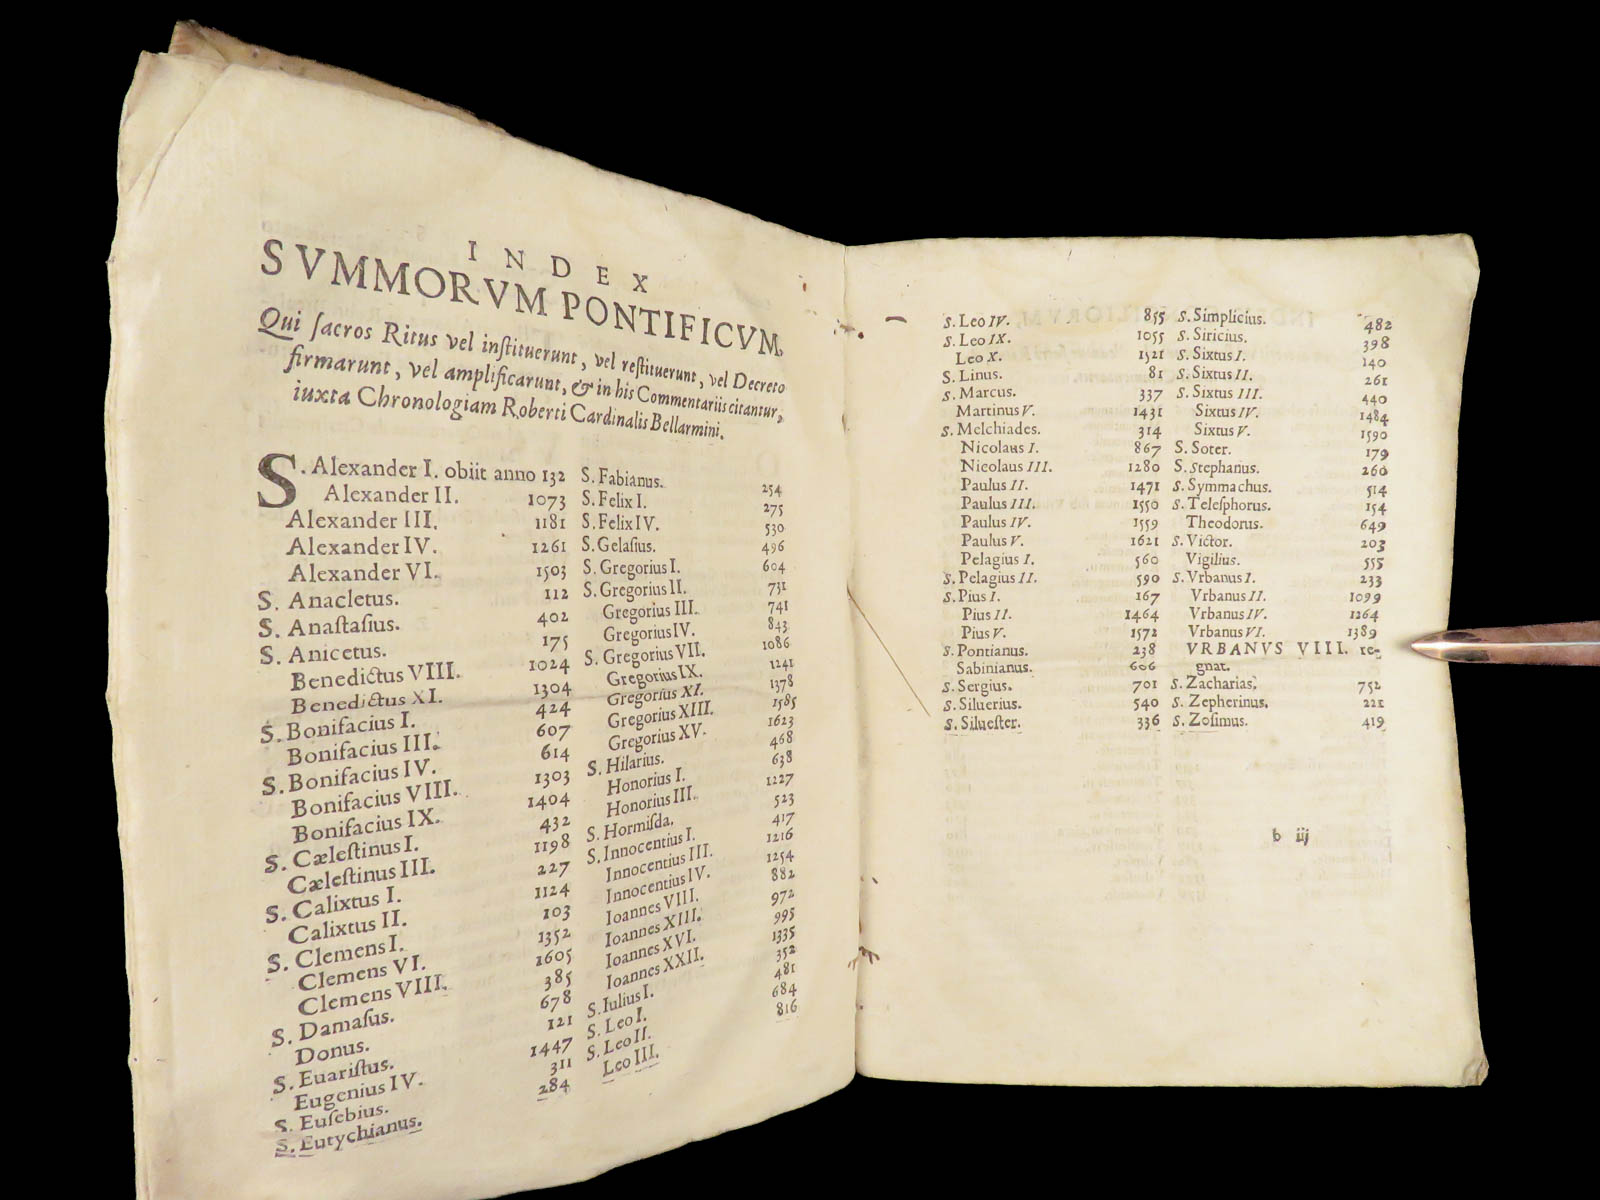 INDEX
SVMMORVM PONTIFICVM,
Qui ſacros Ritus vel inſtituerunt, vel reſtituerunt, vel Decreto
firmarunt, vel amplificarunt, & in his Commentariis citantur,
iuxta Chronologiam Roberti Cardinalis Bellarmini.
S. Alexander I. obiit anno 132
Alexander II. 1073
Alexander III. 1181
Alexander IV. 1261
Alexander VI. 1503
S. Anacletus. 112
S. Anaſtaſius. 402
S. Anicetus. 175
Benedictus VIII. 1024
Benedictus XI. 1304
S. Bonifacius I. 424
Bonifacius III. 607
S. Bonifacius IV. 614
Bonifacius VIII. 1303
Bonifacius IX. 1404
S. Cæleſtinus I. 432
Cæleſtinus III. 1198
S. Calixtus I. 227
Calixtus II. 1124
S. Clemens I. 103
Clemens VI. 1352
Clemens VIII. 1605
S. Damaſus. 385
Donus. 678
S. Euariſtus. 121
Eugenius IV. 1447
S. Euſebius. 311
S. Eutychianus. 284
S. Fabianus. 254
S. Felix I. 275
S. Felix IV. 530
S. Gelaſius. 496
S. Gregorius I. 604
S. Gregorius II. 731
Gregorius III. 741
Gregorius IV. 843
S. Gregorius VII. 1086
Gregorius IX. 1241
Gregorius XI. 1378
Gregorius XIII. 1585
Gregorius XV. 1623
S. Hilarius. 468
Honorius I. 638
Honorius III. 1227
S. Hormiſda. 523
S. Innocentius I. 417
Innocentius III. 1216
Innocentius IV. 1254
Ioannes VIII. 882
Ioannes XIII. 972
Ioannes XVI. 995
Ioannes XXII. 1335
S. Iulius I. 352
S. Leo I. 481
S. Leo II. 684
Leo III. 816
S. Leo IV. 855
S. Leo IX. 1055
Leo X. 1521
S. Linus. 81
S. Marcus. 337
Martinus V. 1431
S. Melchiades. 314
Nicolaus I. 867
Nicolaus III. 1280
Paulus II. 1471
Paulus III. 1550
Paulus IV. 1559
Paulus V. 1621
Pelagius I. 560
S. Pelagius II. 590
S. Pius I. 167
Pius II. 1464
Pius V. 1572
S. Pontianus. 238
Sabinianus. 606
S. Sergius. 701
S. Siluerius. 540
S. Silueſter. 336
S. Simplicius. 482
S. Siricius. 398
S. Sixtus I. 140
S. Sixtus II. 261
S. Sixtus III. 440
Sixtus IV. 1484
Sixtus V. 1590
S. Soter. 179
S. Stephanus. 260
S. Symmachus. 514
S. Teleſphorus. 154
Theodorus. 649
S. Victor. 203
Vigilius. 555
S. Vrbanus I. 233
Vrbanus II. 1099
Vrbanus IV. 1264
Vrbanus VI. 1389
VRBANVS VIII. re-
gnat.
S. Zacharias. 752
S. Zepherinus. 221
S. Zoſimus. 419
b iij